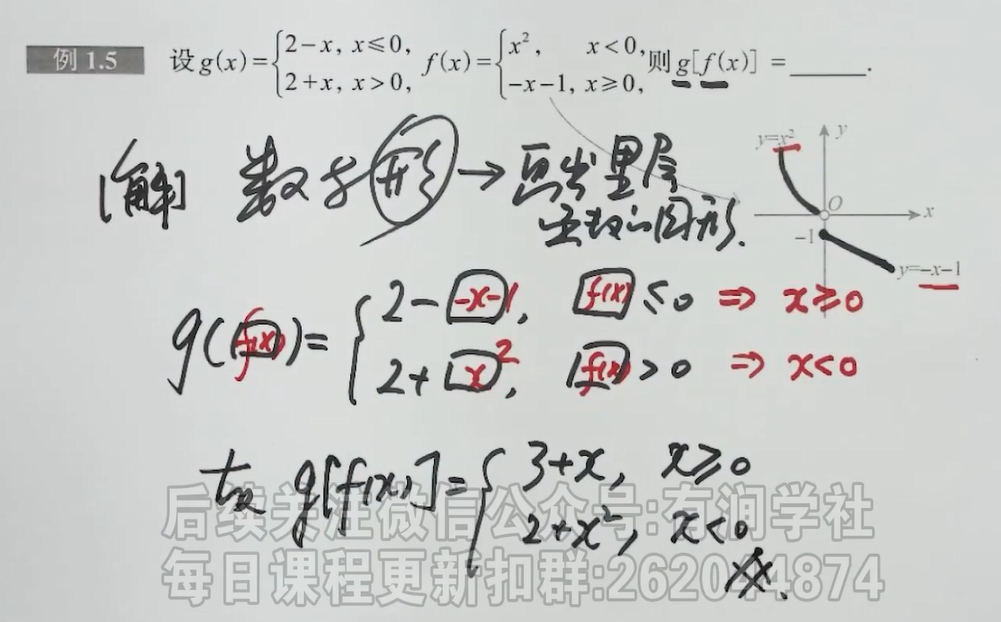 例 1.5 设g(x)={2-x, x≤0, 2+x, x>0, f(x)={x², x<0, -x-1, x≥0, 则g[f(x)] =______.
y=x² y
O x
-1
y=-x-1
[解] 数与形→画出里层
函数的图形.
g(f(x))={2-(-x-1), f(x)≤0 ⇒ x≥0
2+x², f(x)>0 ⇒ x<0
故 g[f(x)]={3+x, x≥0
2+x², x<0
后续关注微信公众号:有润学社
每日课程更新扣群:262044874